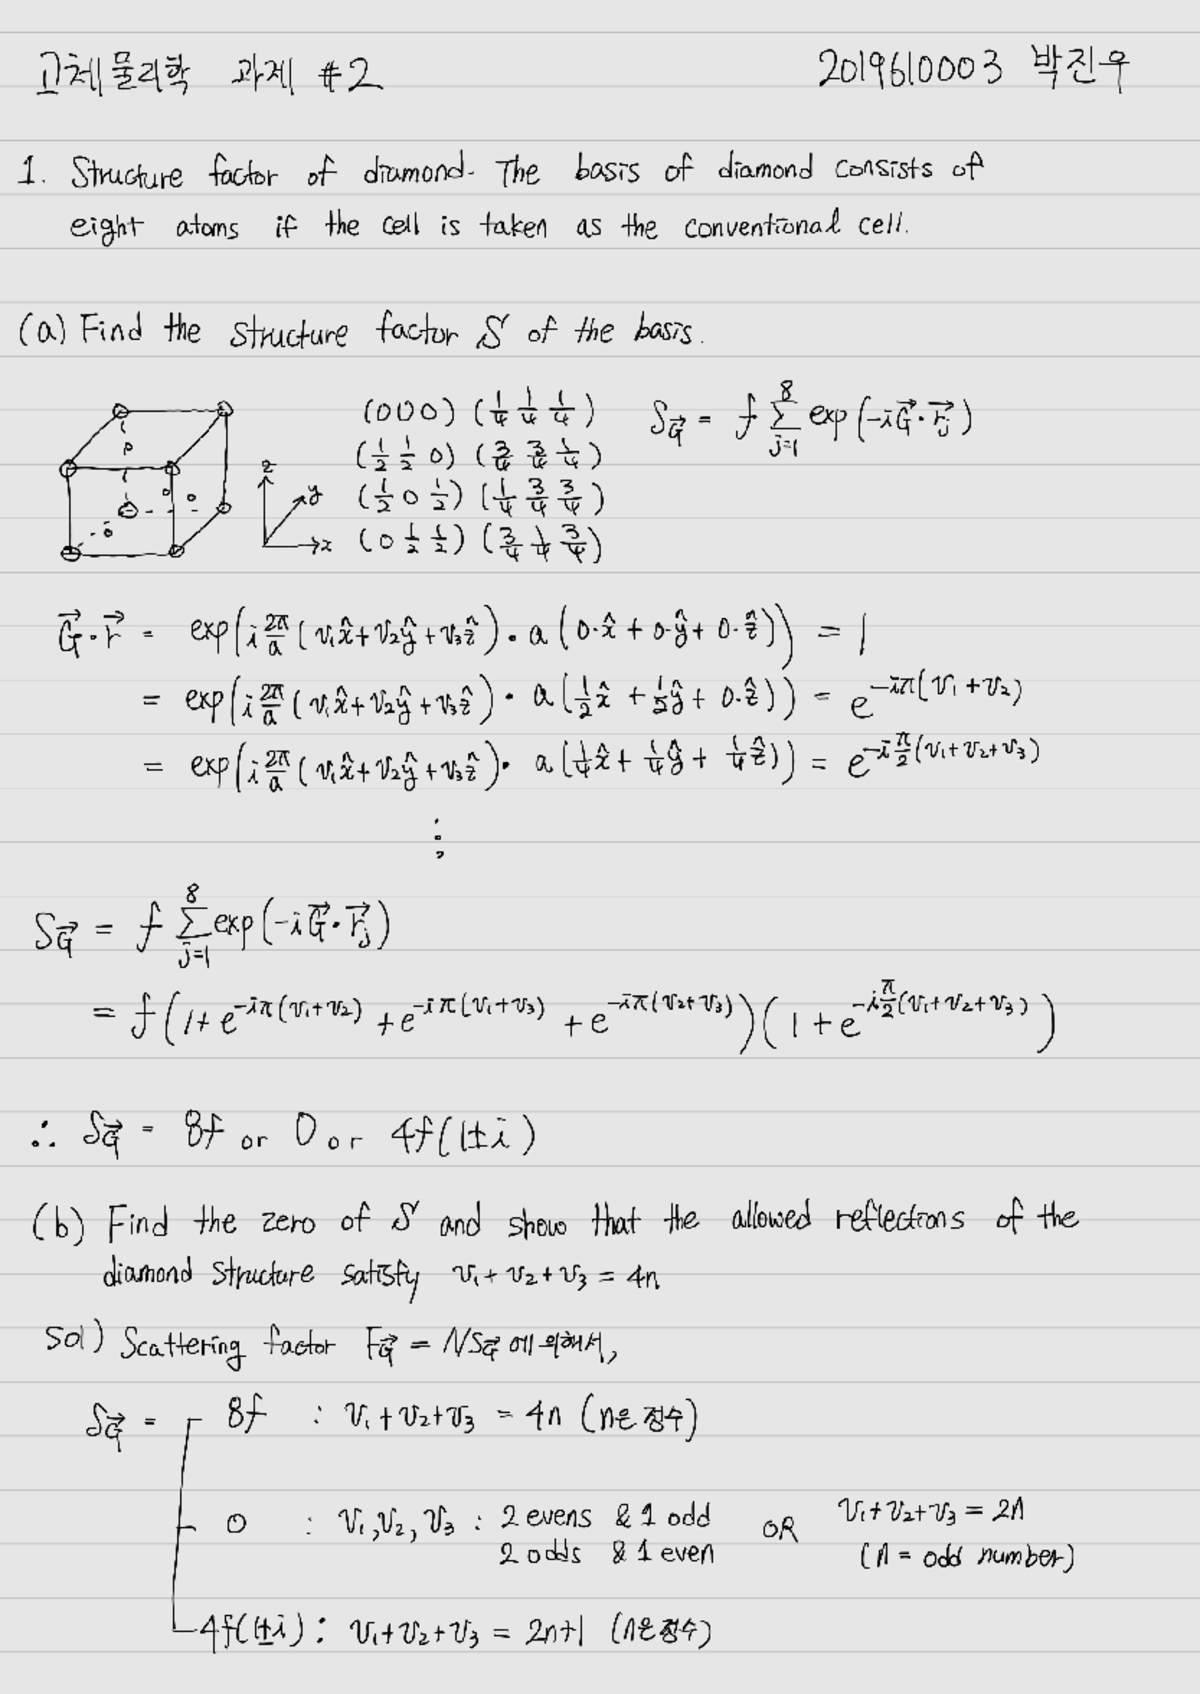 고체물리학 과제 #2 2019610003 박진우
1. Structure factor of diamond. The basis of diamond consists of
eight atoms if the cell is taken as the conventional cell.
(a) Find the structure factor S of the basis.
(0 0 0) (1/4 1/4 1/4) S_G⃗ = f Σ_{j=1}^{8} exp(-iG⃗·r⃗_j)
(1/2 1/2 0) (3/4 3/4 1/4)
(1/2 0 1/2) (1/4 3/4 3/4)
(0 1/2 1/2) (3/4 1/4 3/4)
z y x
G⃗·r⃗ = exp(i 2π/a (v₁x̂+v₂ŷ+v₃ẑ)·a(0·x̂+0·ŷ+0·ẑ)) = 1
= exp(i 2π/a (v₁x̂+v₂ŷ+v₃ẑ)·a(1/2 x̂+1/2 ŷ+0·ẑ)) = e^{-iπ(v₁+v₂)}
= exp(i 2π/a (v₁x̂+v₂ŷ+v₃ẑ)·a(1/4 x̂+1/4 ŷ+1/4 ẑ)) = e^{-i π/2 (v₁+v₂+v₃)}
⋮
S_G⃗ = f Σ_{j=1}^{8} exp(-iG⃗·r⃗_j)
= f(1+e^{-iπ(v₁+v₂)}+e^{-iπ(v₁+v₃)}+e^{-iπ(v₂+v₃)})(1+e^{-i π/2 (v₁+v₂+v₃)})
∴ S_G⃗ = 8f or 0 or 4f(1±i)
(b) Find the zero of S and show that the allowed reflections of the
diamond structure satisfy v₁+v₂+v₃=4n
sol) Scattering factor F_G⃗ = NS_G⃗ 에 의해서,
S_G⃗ = 8f : v₁+v₂+v₃ = 4n (n은 정수)
0 : v₁,v₂,v₃ : 2 evens & 1 odd OR v₁+v₂+v₃=2n
2 odds & 1 even (n = odd number)
4f(1±i) : v₁+v₂+v₃ = 2n+1 (n은 정수)